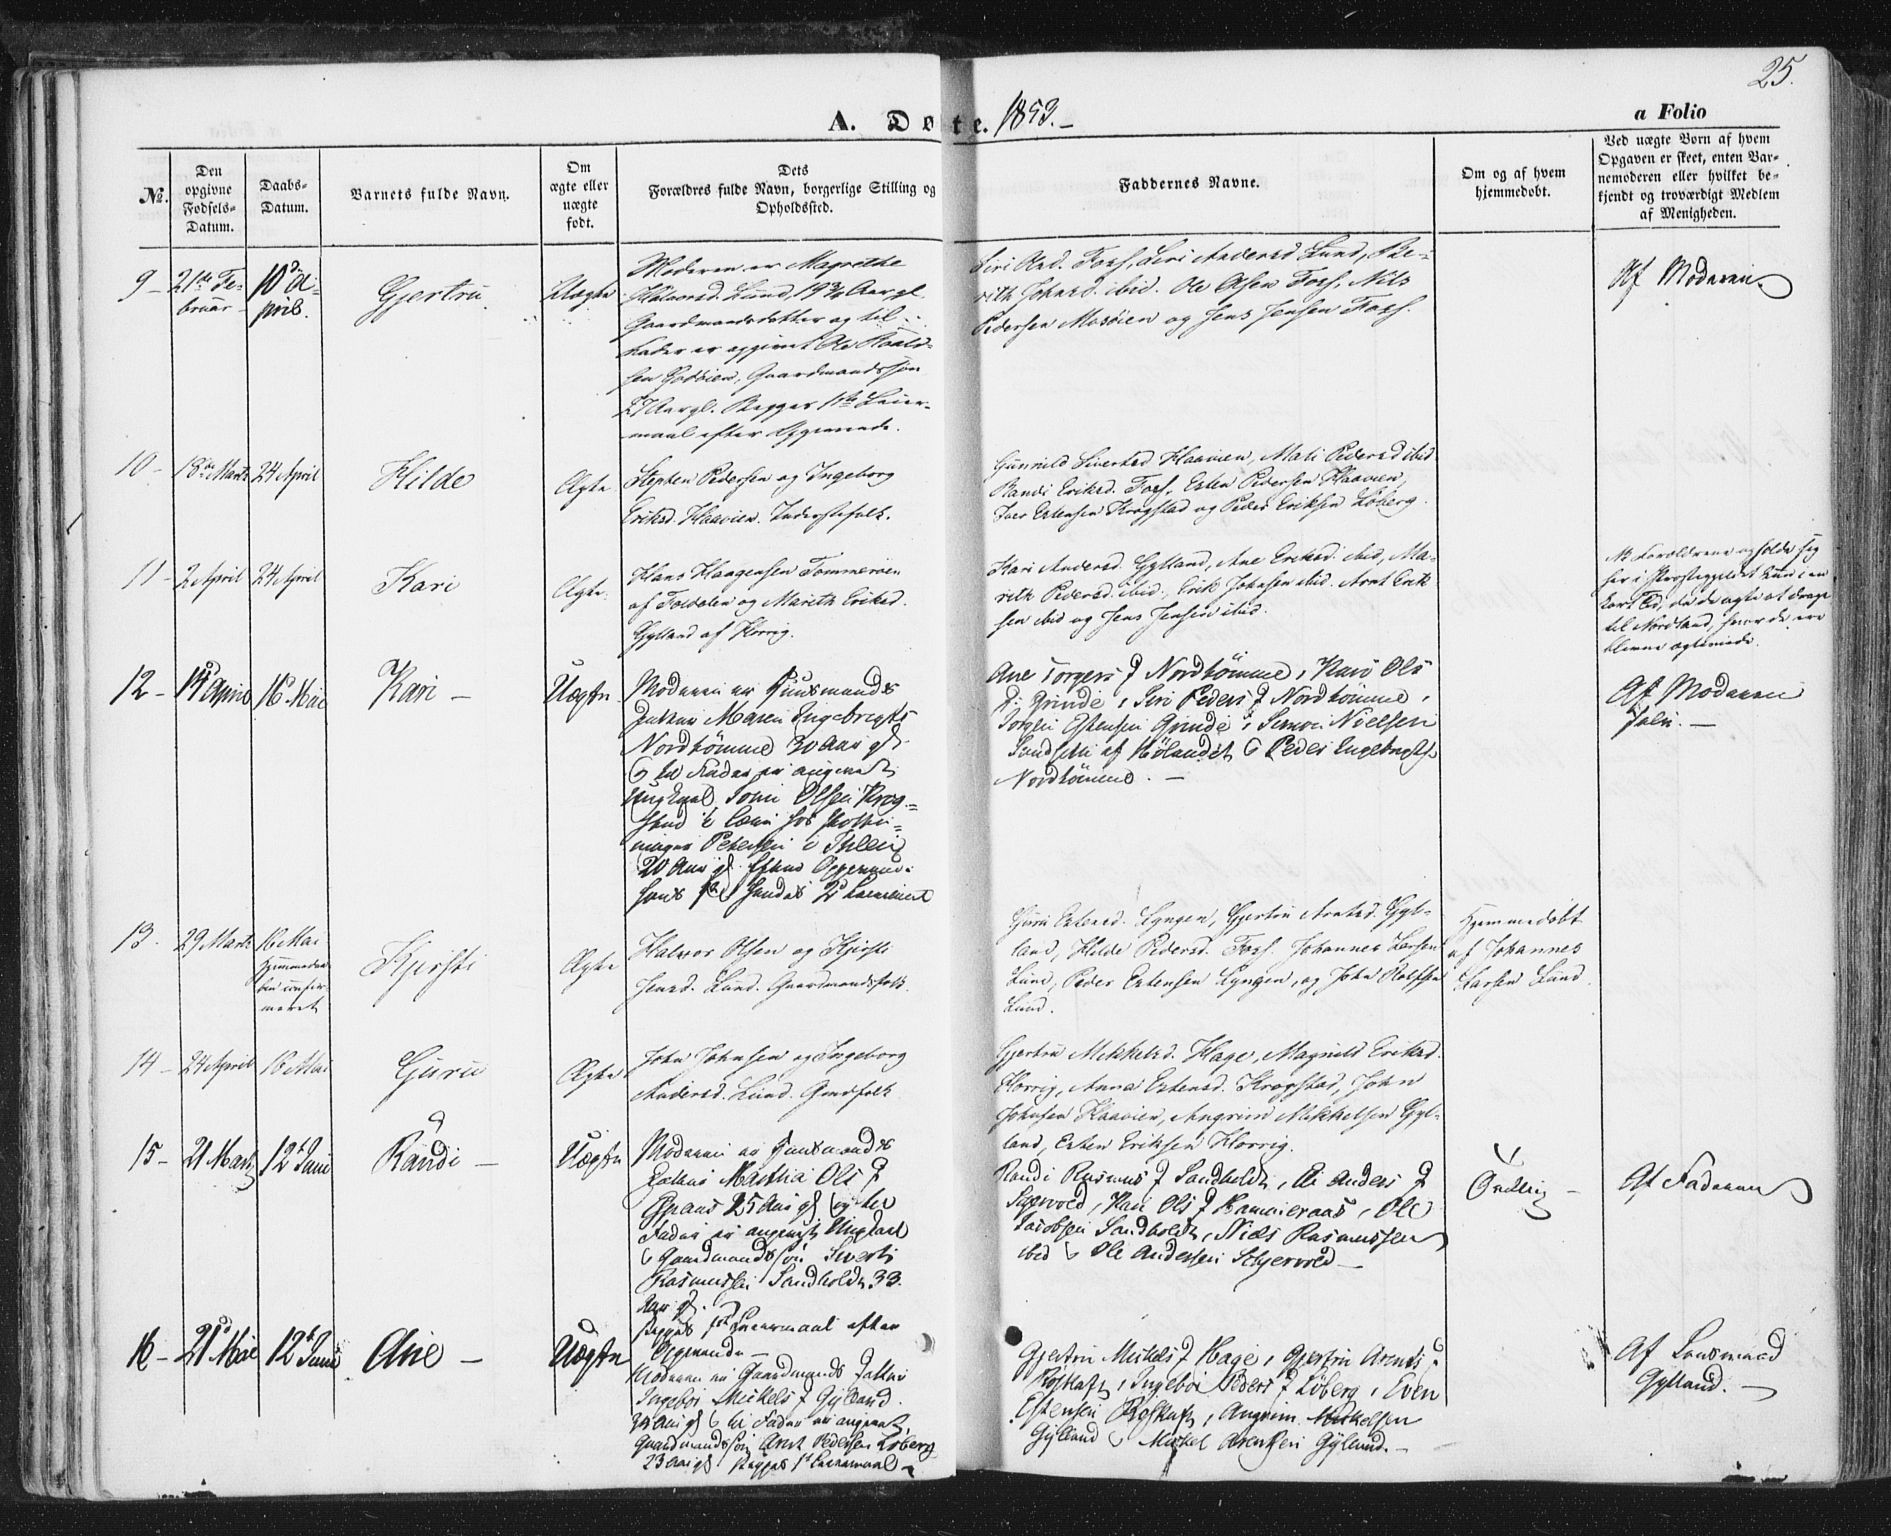 25.
A. Døbte. 1853.
a Folio
No.
Den opgivne Fødsels-Datum.
Daabs-Datum.
Barnets fulde Navn.
Om ægte eller uægte født.
Dets Forældres fulde Navn, borgerlige Stilling og Opholdssted.
Faddernes Navne.
Om og af hvem hjemmedøbt.
Ved uægte Børn af hvem Opgaven er skeet, enten Barnemoderen eller hvilket bekjendt og troværdigt Medlem af Menigheden.
9 -
21de Februar
10 April.
Gjertru
Uægte
Moderen er Magrethe
Halvorsd. Lund, 19 3/4 Aar gl.
Gaardmandsdatter og til
Fader er opgivet Ole Roald-
sen Godøien, Gaardmandssøn
27 Aar gl. Begges 1ste Leier-
maal efter Opgivende.
Siri And. Foss, Siri Andersd Lund, Be-
rith Johnsd. ibid. Ole Olsen Foss, Nils
Pedersen Mosøien og Jens Jensen Foss.
Af Moderen
10 -
18de Marts
24 April
Hilde
Ægte
Stephen Pedersen og Ingeborg
Eriksd. Haavien. Inderstefolk.
Gunnild Sivertsd Haavien, Mali Pedersd ibid
Randi Eriksd. Foss, Esten Pedersen Haavien,
Iver Estensen Krogstad og Peder Eriksen Løberg.
11 -
2 April
24 April
Kari
Ægte.
Hans Haagensen Tommeraen
af Foldalen og Marith Eriksd.
Gylland af Horrig.
Kari Andersd. Gylland, Ane Eriksd. ibid, Ma-
rith Pedersd. ibid, Erik Johnsen ibid. Arnt Erik
sen ibid og Jens Jensen ibid.
NB Forældrene opholde sig
her i Præstegjeldet kun i en
kort Tid, da de agte at drage
til Nordland, hvor de ere
blevne ægteviede.
12 -
14 April
16 Mai
Kari -
Uægte
Moderen er Huusmands
Datter Maren Ingebrigts
Nordtømme 30 Aar gl.
og til Fader er angivet
Ungkarl Soni Olsen Krog-
stad i Læra hos
Petersen i Ihlen
20 Aar gl. Efter Opgivende
hans 1ste hendes 2d Leiermaal
Ane Torgersd Nordtømme, Kari Ols
D. Grinde, Siri Pedersd Nordtømme,
Torsten Estensen Grinde, Simon Nielsen
Sundsetti af Hølandet & Peder Engebregtsn
Nordtømme. -
Af Moderen
selv. -
13.
29 Marts
16 Mai
Hjemmedaa-
ben confir-
meret
Kjersti
Ægte
Halvor Olsen og Kjersti
Jensd. Lund. Gaardmandsfolk.
Guru Estensd. Lyngen, Gjertru Arntsd. Gyl-
land, Hilde Pedersd. Foss. Johannes Larsen
Lund, Peder Estensen Lyngen, og John Rolfsen
Lund.
Hjemmedøbt
af Johannes
Larsen Lund.
14 -
24 April
16 Mai
Guru
Ægte
John Johnsen og Ingeborg
Andersd. Lund. Gmdfolk
Gjertru Mikkelsd. Hage, Magnild Eriksd.
Horrig, Anna Estensd. Krogstad, John
Johnsen Haavien, Angrim Mikkelsen Gyl-
land, Esten Eriksen Horrig.
15 -
21 Marts
12t Juni
Randi -
Uægte
Moderen er Huusmands
Datter Martha Ols D
25 Aar gl og til
Fader er angivet Ungkarl
& Gaardmandssøn Sivert
Rasmussen Sandholdt 33
Aar gl.
Begges 1ste Leiermaal efter
Opgivende -
Randi Rasmusd Sandholdt, Ane Andersd
Skjervold, Kari Olsd Rammeraas, Ole
Jacobsen Sandholdt, Niels Rasmussen
ibid & Ole Andersen Schjervold -
Av Faderen
16 -
21 Mai
12t Juni
Ane -
Uægte
Moderen er Gaardmands Datter
Ingebor Mickelsd Gylland.
Aar gl & til Fader er angivet
Gaardmandssøn Arnt Pedersen Løberg
23 Aar gl Begges 1st Leiermaal -
Gjertru Mickelsd Hage, Gjertru Arntsd
Røskaft, Ingebor Pedersd Løberg, Even
Estensen Røskaft, Angrim Mickelsen
Gylland & Mickel Arentsen Gylland. -
Af Lensmand
Gylland. -